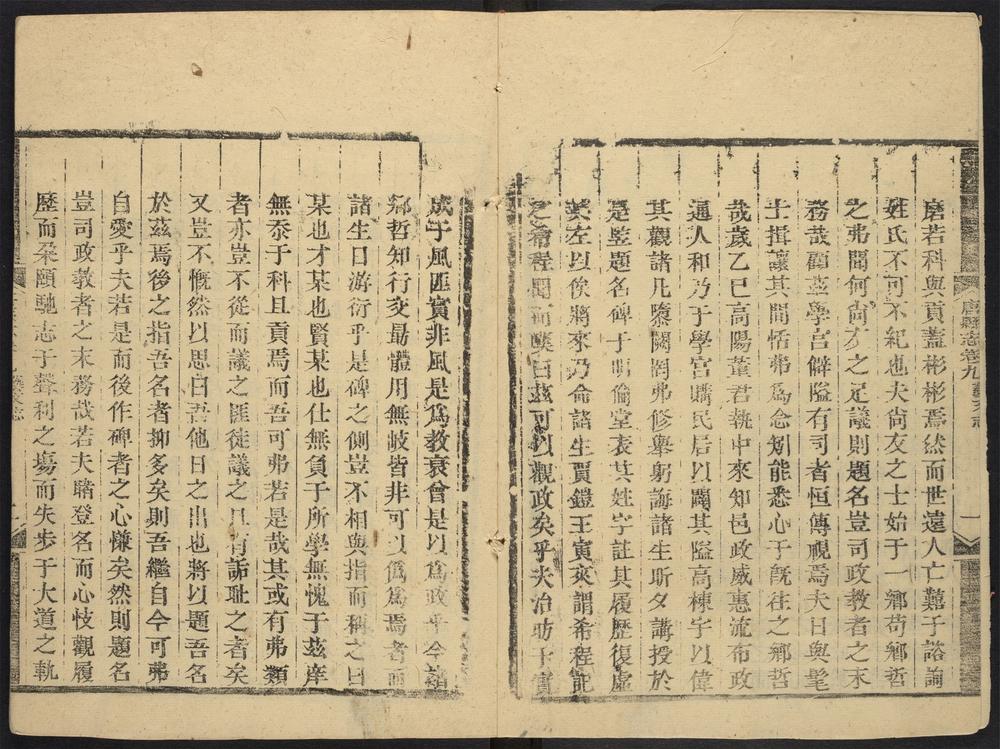 唐縣志卷九 藝文志 一
磨若科與貢蓋彬彬焉然而世遠人亡難于諮詢
姓氏不可不紀也夫尚友之士始于一鄉苟鄉哲
之弗問何尚友之足議則題名豈司政教者之末
務哉顧茲學宮僻隘有司者恒傳視焉夫日與髦
士揖讓其間恬弗爲念矧能悉心于旣往之鄉哲
哉歲乙巳高陽董君執中來知邑政威惠流布政
通人和乃于學宮購民居以闢其隘高棟宇以偉
其觀諸凡隳闕罔弗修舉躬誨諸生昕夕講授於
是豎題名碑于明倫堂表其姓字註其履歷復虛
其左以俟將來乃命諸生賈鎧王寅來謂希程記
之希程聞而嘆曰茲可以觀政矣乎夫治昉于實
成于風匪實非風是爲教衰曾是以爲政乎今諸
鄉哲知行交勗體用無岐皆非可以僞爲焉者而
諸生日游衍乎是碑之側豈不相與指而稱之曰
某也才某也賢某也仕無負于所學無愧于茲庠
無忝于科且貢焉而吾可弗若是哉其或有弗類
者亦豈不從而議之匪徒議之且有詬恥之者矣
又豈不慨然以思曰吾他日之出也將以題吾名
於茲焉後之指吾名者抑多矣則吾繼自今可弗
自愛乎夫若是而後作碑者之心慊矣然則題名
豈司政教者之末務哉若夫睹登名而心忮觀履
歷而朶頤馳志于聲利之塲而失步于大道之軌